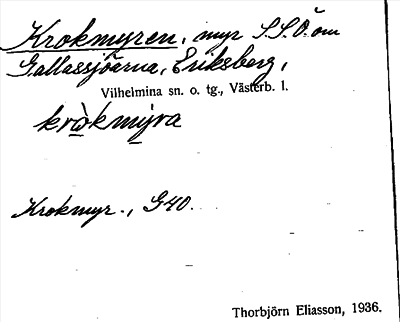 Krokmyren, myr S.S.Ö. om
Gallassjöarna, Eriksberg,
Vilhelmina sn. o. tg., Västerb. l.
kròkmýra
Krokmyr., G40.
Thorbjörn Eliasson, 1936.